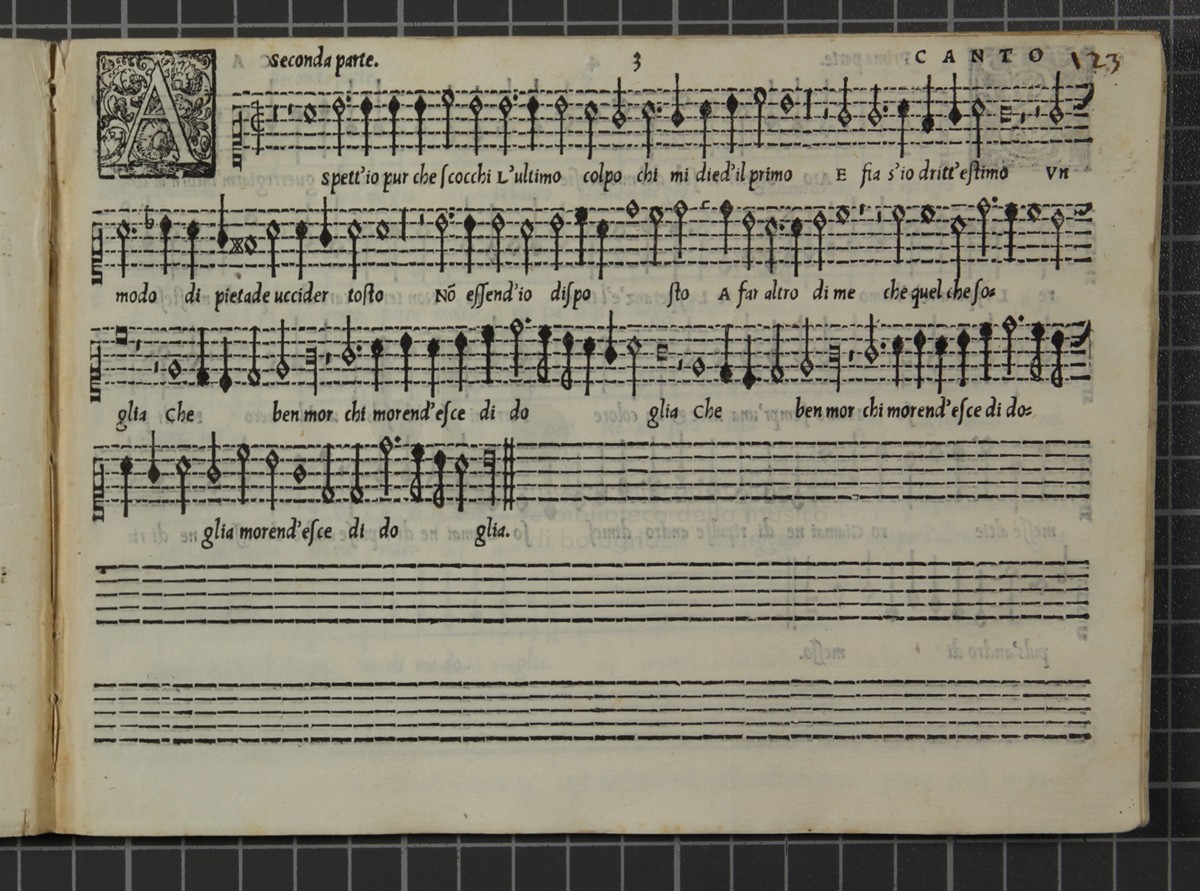 Seconda parte. 3 CANTO 123
A
spett'io pur che scocchi L'ultimo colpo chi mi died'il primo E fia s'io dritt'estimo Vn
modo di pietade uccider tosto Nõ essend'io dispo sto A far altro di me che quel che so=
glia Che ben mor chi morend'esce di do glia Che ben mor chi morend'esce di do=
glia morend'esce di do glia.